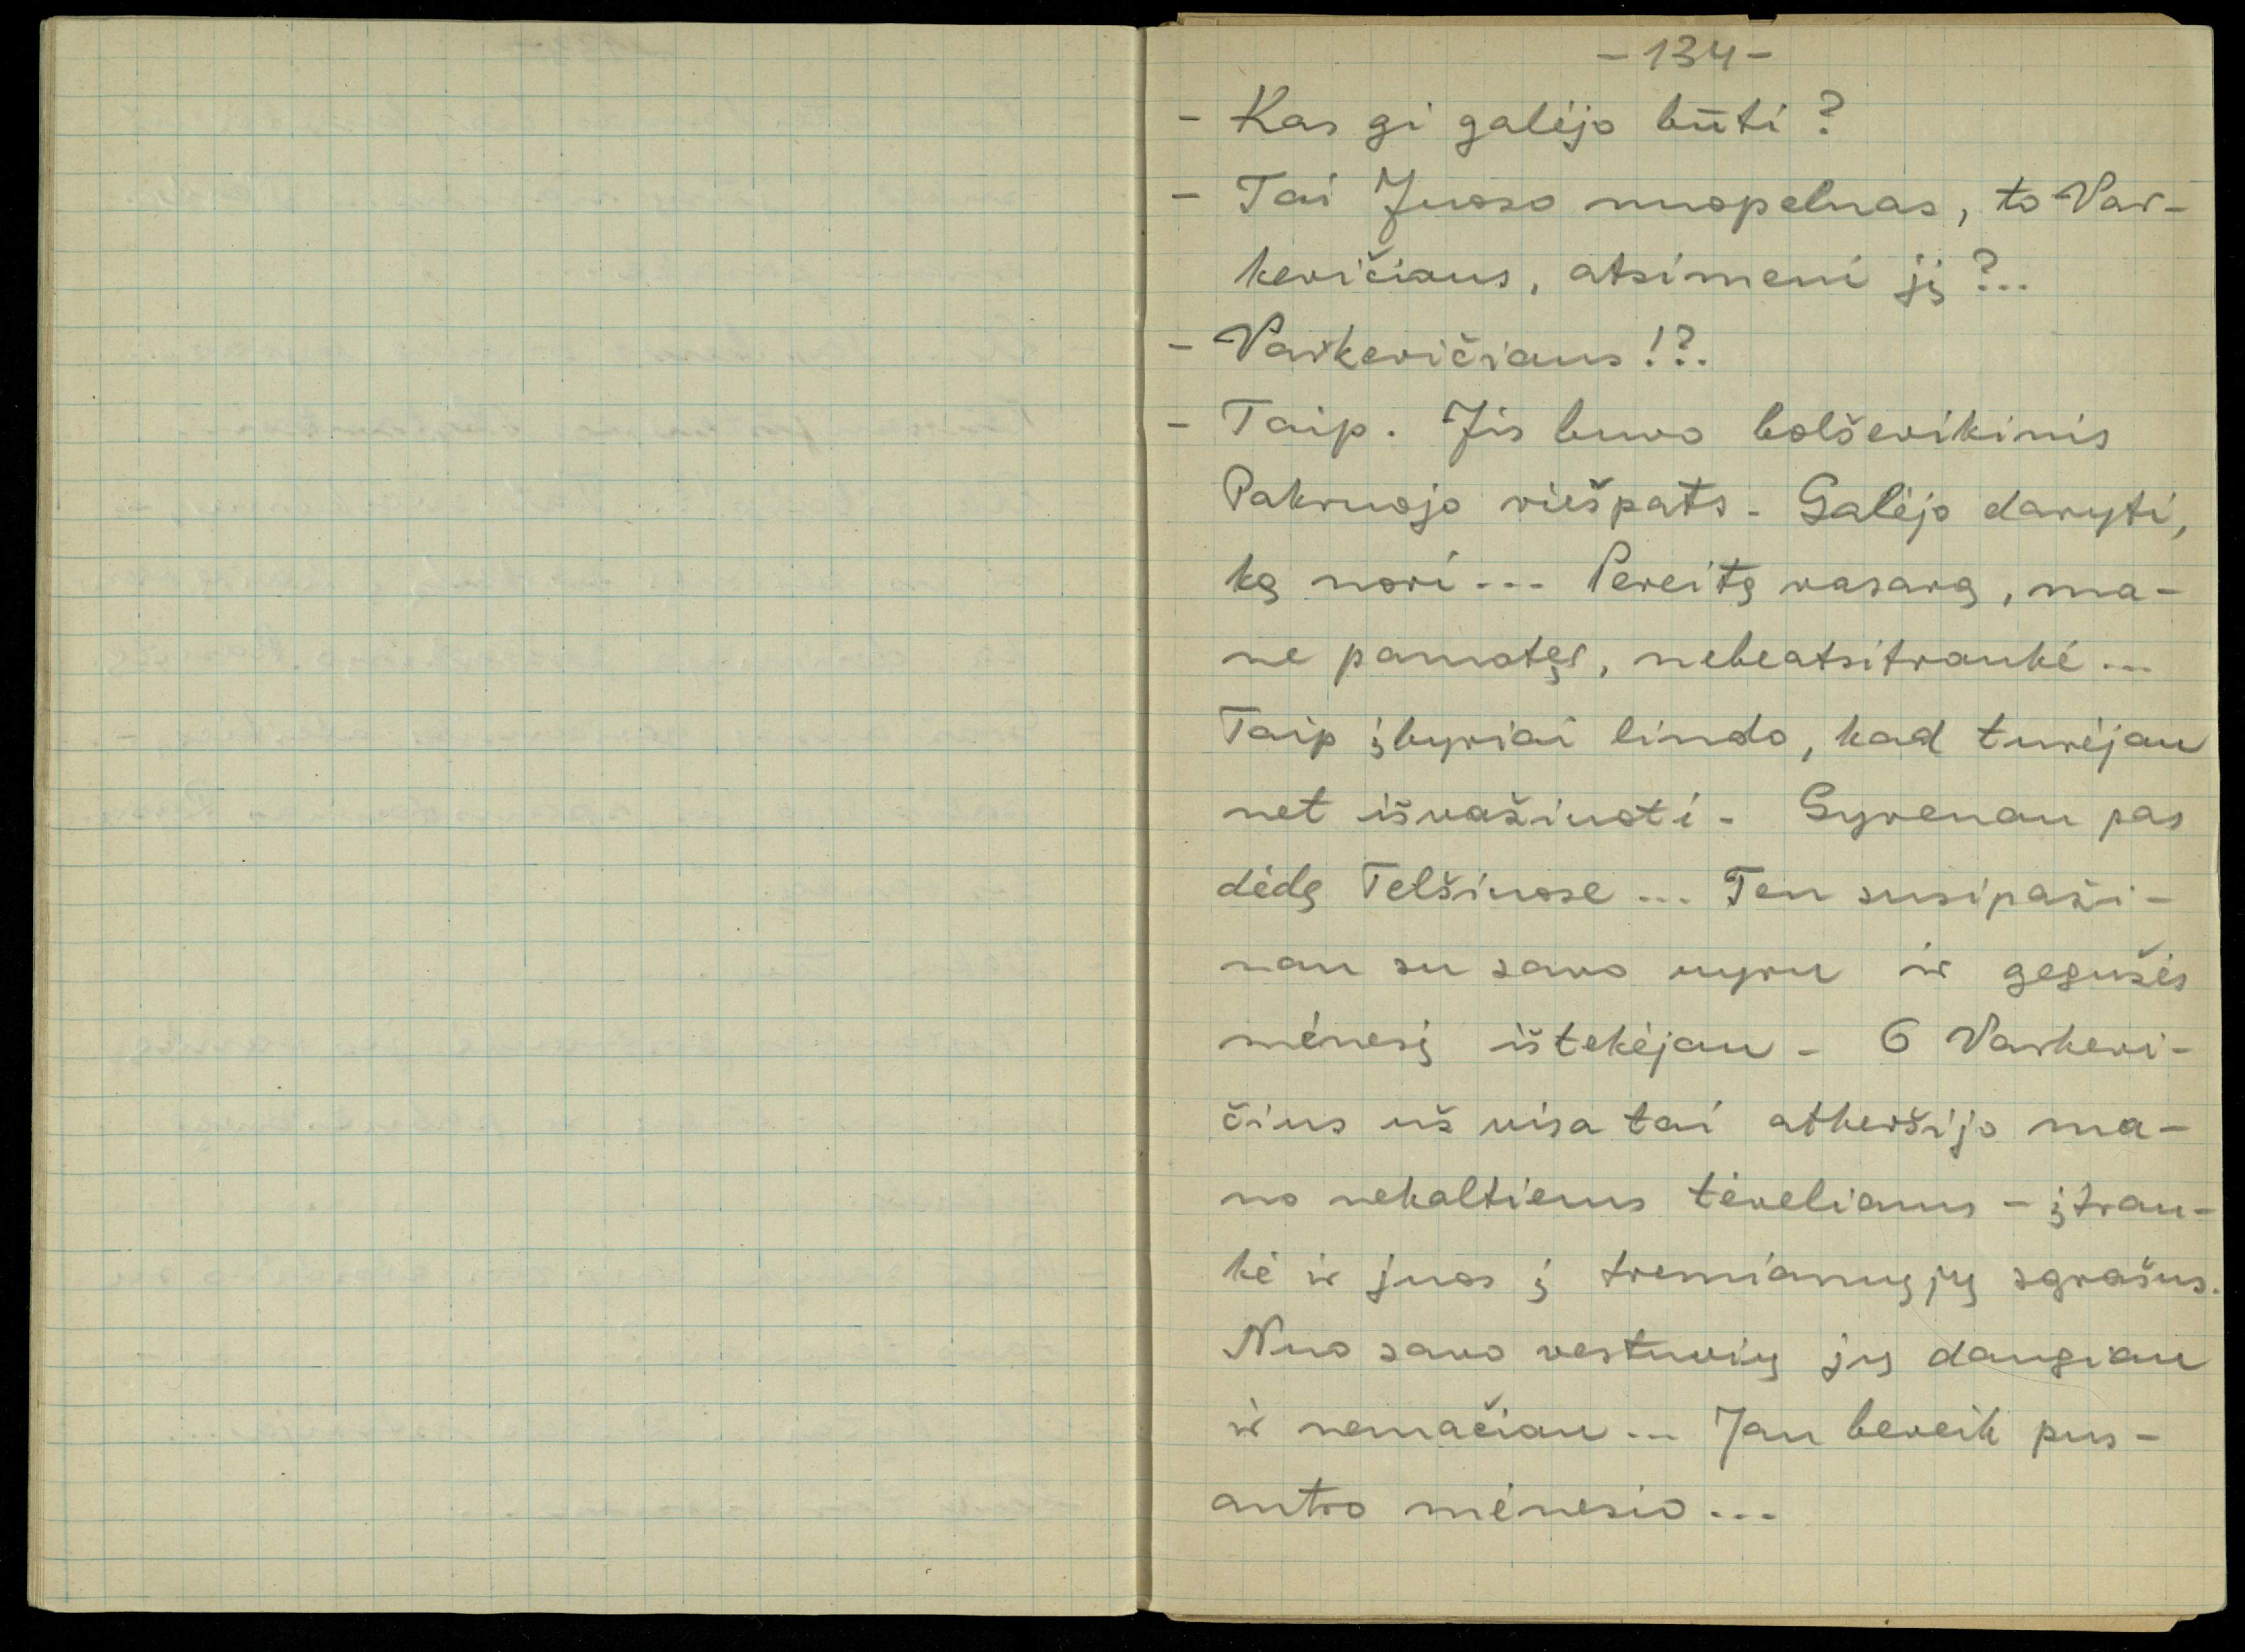 - 134 -
- Kas gi galėjo būti?
- Tai Juoso nuopelnas, to Var-
kevičiaus, atsimeni jį?..
- Varkevičiaus!?.
- Taip. Jis buvo bolševikinis
Pakruojo viešpats. Galėjo daryti,
ką nori... Pereitą vasarą, ma-
ne pamatęs, nebeatsitraukė...
Taip įkyriai lindo, kad turėjau
net išvažiuoti. Gyvenau pas
dėdę Telšiuose... Ten susipaži-
nau su savo vyru ir gegužės
mėnesį ištekėjau. O Varkevi-
čius už visa tai atkeršijo ma-
no nekaltiems tėveliams - įtrau-
kė ir juos į tremiamųjų sąrašus.
Nuo savo vestuvių jų daugiau
ir nemačiau... Jau beveik pus-
antro mėnesio...